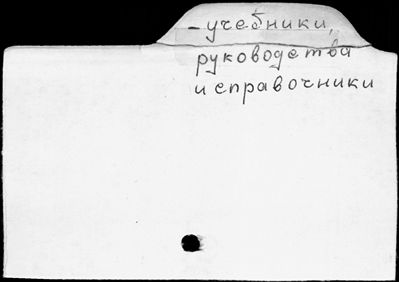 - учебники,
руководства
и справочники